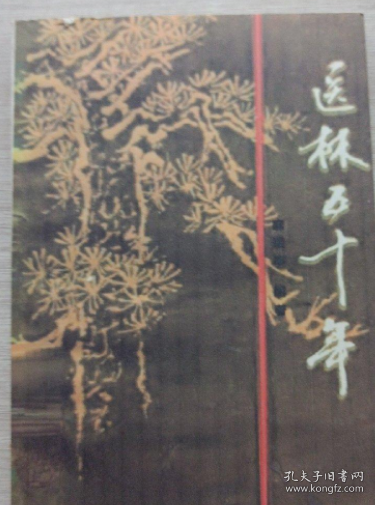 医林五十年
孔夫子旧书网
www.kongfz.com